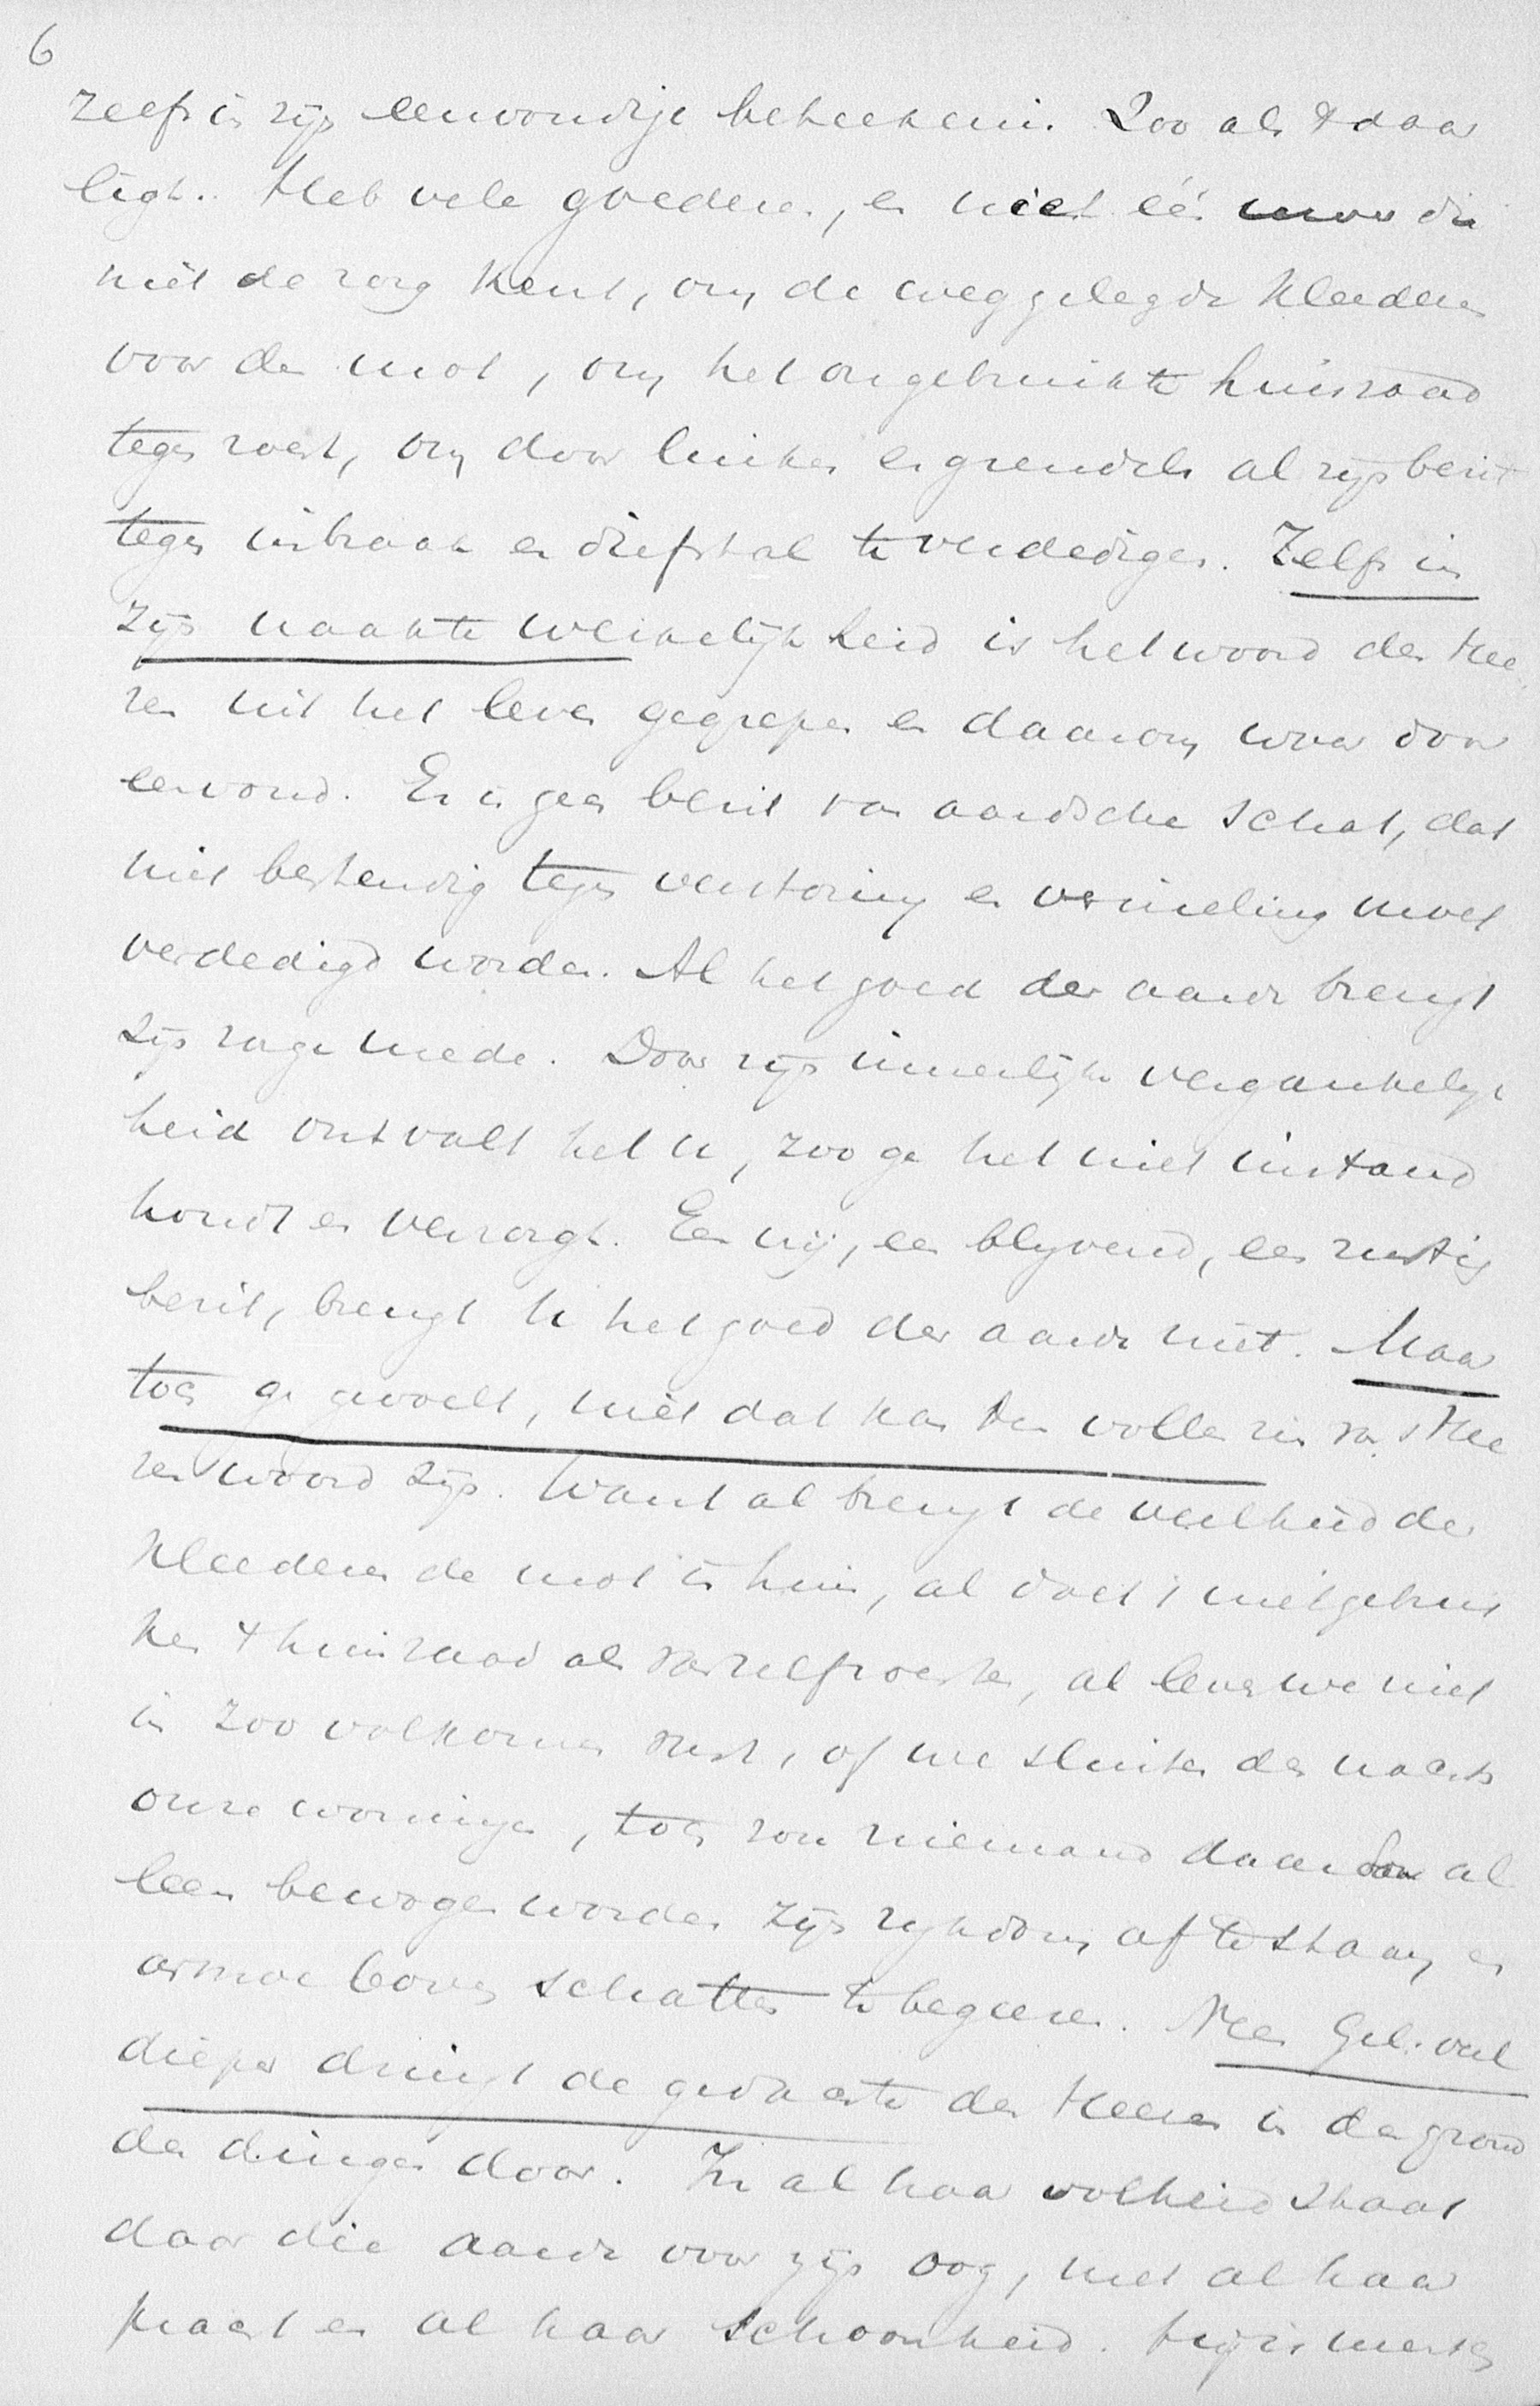 6
zelfs in zijn eenvoudige beteekenis. Zoo als 't daar
ligt. Heb vele goederen, en niet één uwer die
niet de zorg kent, om de weggelegde kleederen
voor de mot, om het ongebruikte huisraad
tegen roest, om door luiken en grendels al zijn bezit
tegen inbraak en diefstal te verdedigen. Zelfs in
zijn naakte werkelijkheid is het woord des Hee
ren uit het leven gegrepen en daarom waar door
eenvoud. Er is geen bezit van aardsche schat, dat
niet bestendig tegen verstoring en vernieling moet
verdedigd worden. Al het goed der aarde brengt
zijn zorge mede. Door zijn innerlijke vergankelijk
heid ontvalt het u, zoo ge het niet instand
houdt en verzorgt. Een vrij, een blijvend, een rustig
bezit, brengt u het goed der aarde niet. Maar
toch ge gevoelt, niet dat kan den vollen zin van 's Hee
ren woord zijn. Want al brengt de veelheid der
kleederen de mot in huis, al doet 't niet gebrui
ken 't huisraad als van zelf roesten, al leven we niet
in zoo volkomen rust, of we sluiten des nachts
onze woningen, toch zou niemand daardoor al
leen bewogen worden zijn rijkdom af te staan, en
armoe boven schatten te begeeren. Neen Gel. veel
dieper dringt de gedachte des Heeren in den grond
der dingen door. In al haar volheid staat
daar die aarde voor zijn oog, met al haar
pracht en al haar schoonheid. Hij is